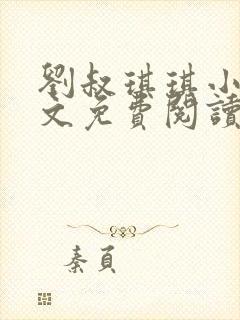 劉叔琪琪小
文免費閱讀
秦頁